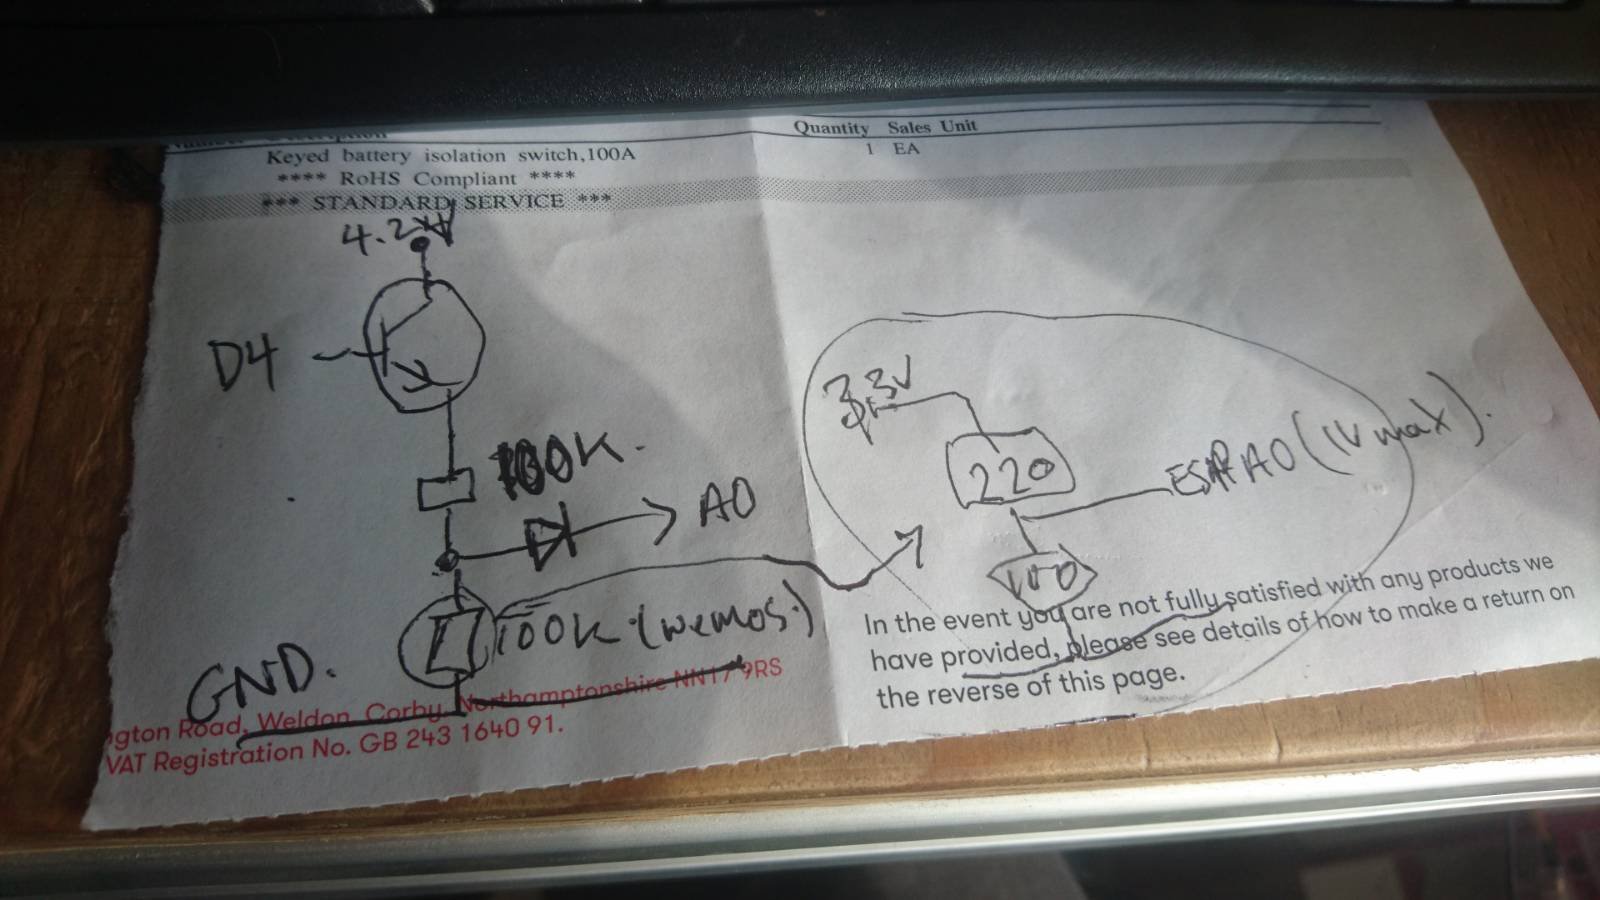 Quantity Sales Unit
Keyed battery isolation switch,100A
1 EA
**** RoHS Compliant ****
*** STANDARD SERVICE ***
4.2V
D4
100K.
A0
3.3V
220
ESP A0 (1V max).
100
100K (wemos.)
GND.
In the event you are not fully satisfied with any products we
have provided, please see details of how to make a return on
the reverse of this page.
gton Road, Weldon, Corby, Northamptonshire NN17 9RS
VAT Registration No. GB 243 1640 91.